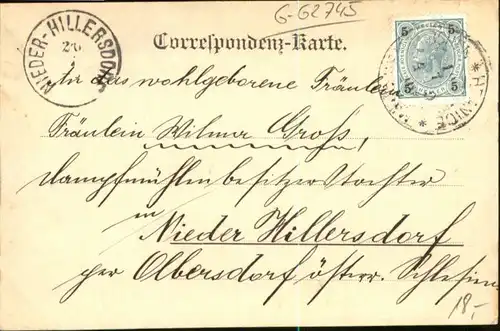 G-62745
NIEDER-HILLERSDORF
Correspondenz-Karte.
5 5
5 5
An das wohlgeborene Fräulein
Fräulein Wilma Groß,
Dampfmühlenbesitzerstochter
in
Nieder Hillersdorf
per Olbersdorf österr. Schlesien
18,-